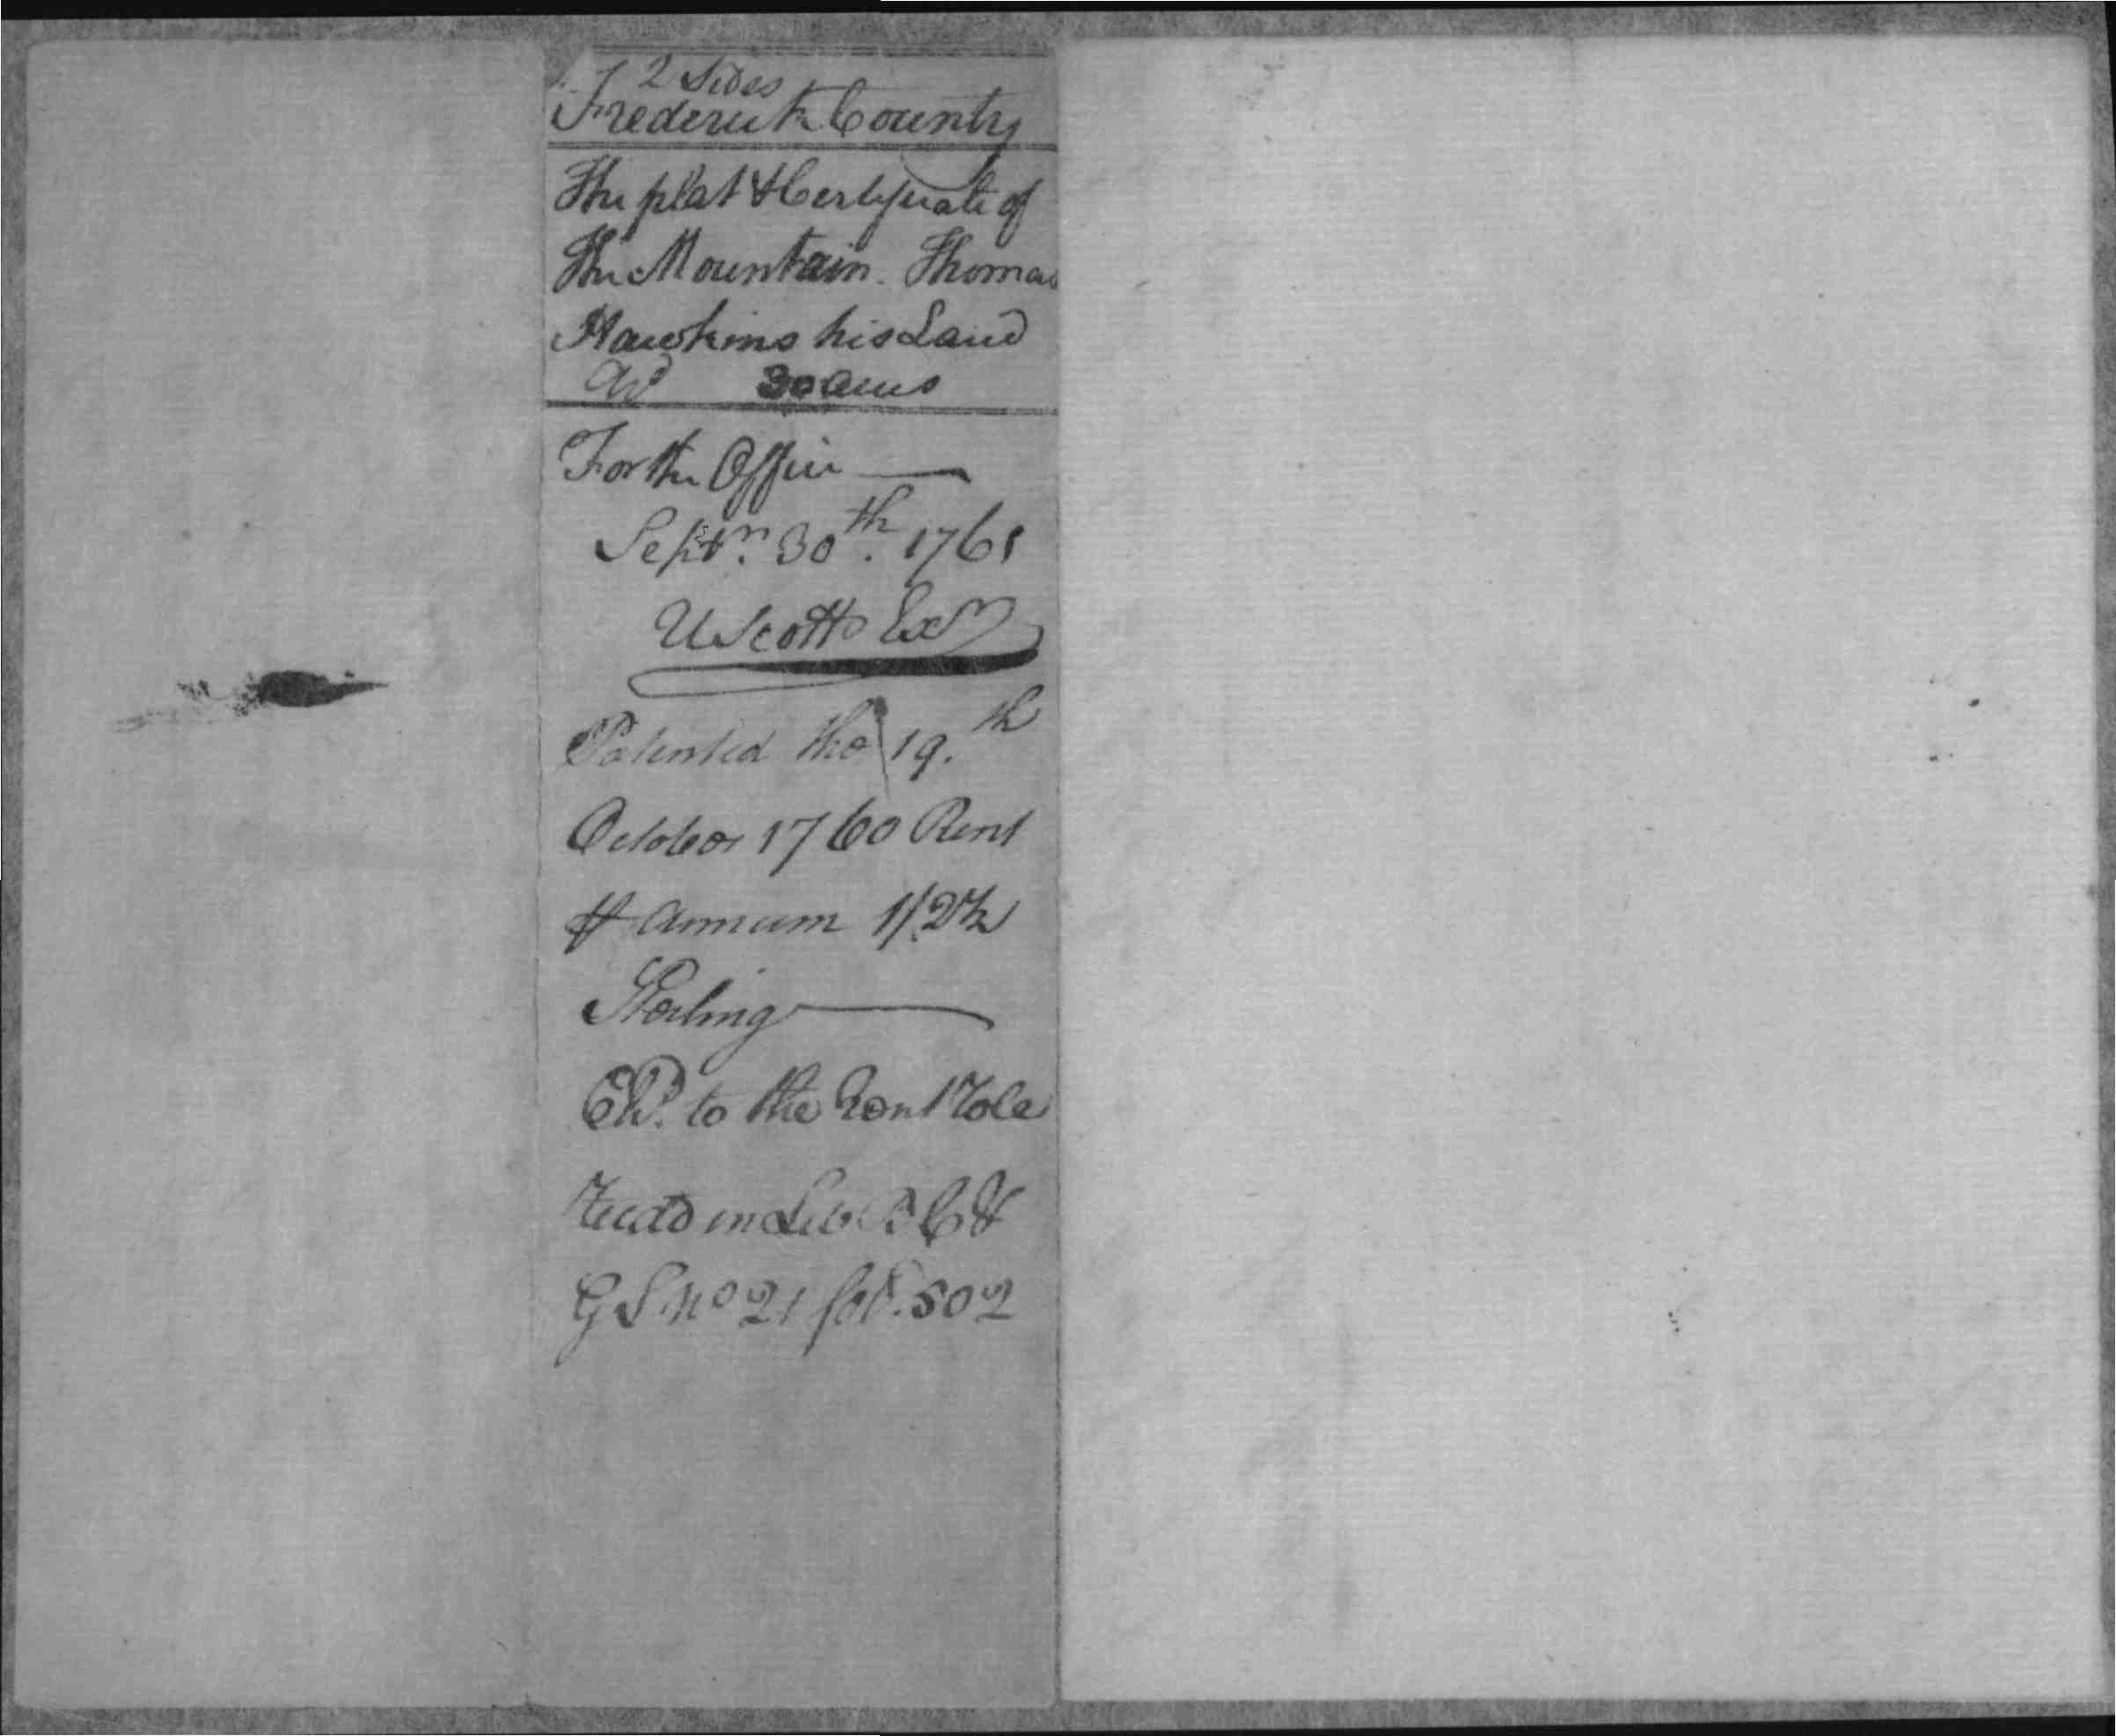 2 Sides
Frederick County
The plat & Certificate of
The Mountain. Thomas
Hawkins his Land
30 Acres
For the Office
Septr. 30th. 1761
U Scott Exr
Patented the 19.th
October 1760 Rent
⅌ Annum 1/2½
Sterling
Ed. to the Rent Role
Recd in Lib: B C &
G S No 21 fol. 502